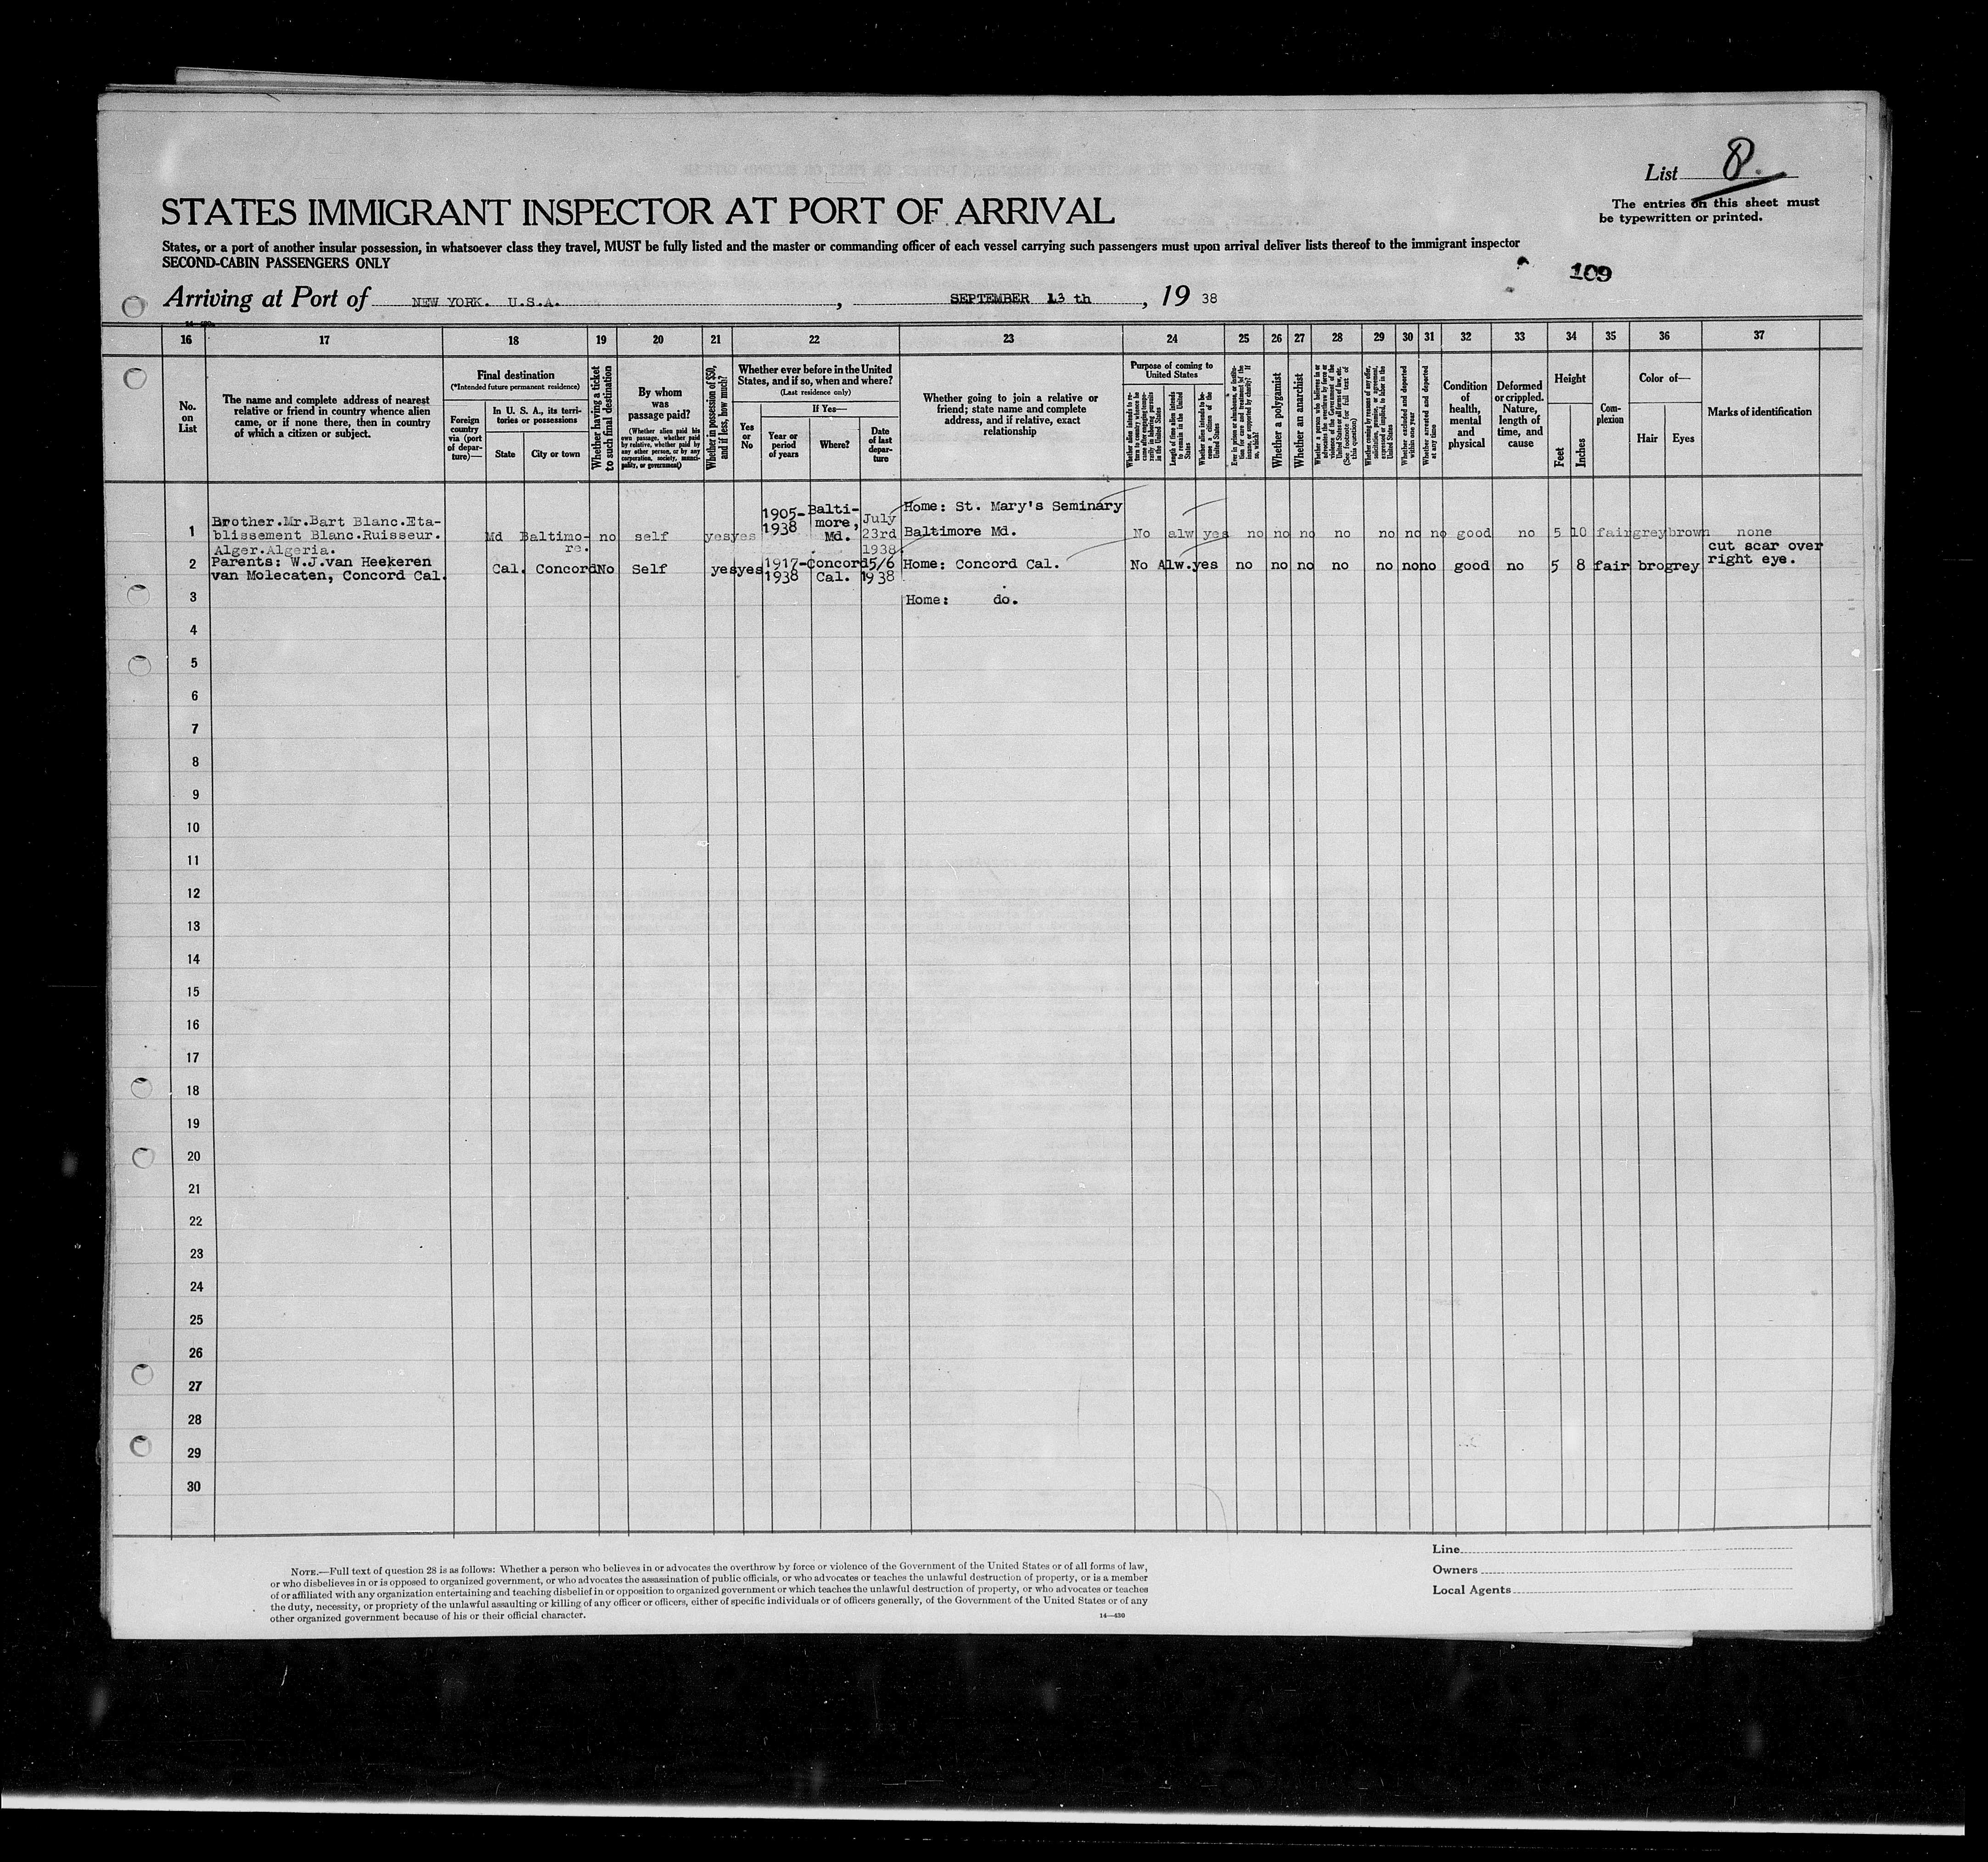 List 8.
The entries on this sheet must
be typewritten or printed.
STATES IMMIGRANT INSPECTOR AT PORT OF ARRIVAL
States, or a port of another insular possession, in whatsoever class they travel, MUST be fully listed and the master or commanding officer of each vessel carrying such passengers must upon arrival deliver lists thereof to the immigrant inspector
SECOND-CABIN PASSENGERS ONLY
109
Arriving at Port of NEW YORK. U.S.A. , SEPTEMBER 13 th , 19 38
16 17 18 19 20 21 22 23 24 25 26 27 28 29 30 31 32 33 34 35 36 37
No.
on
List
The name and complete address of nearest
relative or friend in country whence alien
came, or if none there, then in country
of which a citizen or subject.
Final destination
(*Intended future permanent residence)
Foreign
country
via (port
of depar-
ture)—
In U. S. A., its terri-
tories or possessions
State
City or town
Whether having a ticket
to such final destination
By whom
was
passage paid?
(Whether alien paid his
own passage, whether paid
by relative, whether paid by
any other person, or by any
corporation, society, munici-
pality, or government)
Whether in possession of $50,
and if less, how much?
Whether ever before in the United
States, and if so, when and where?
(Last residence only)
Yes
or
No
If Yes—
Year or
period
of years
Where?
Date
of last
depar-
ture
Whether going to join a relative or
friend; state name and complete
address, and if relative, exact
relationship
Purpose of coming to
United States
Whether alien intends to re-
turn to country whence he
came after engaging tempo-
rarily in laboring pursuits
in the United States
Length of time alien intends
to remain in the United
States
Whether alien intends to be-
come a citizen of the
United States
Ever in prison or almshouse, or institu-
tion for care and treatment of the
insane, or supported by charity? If
so, which?
Whether a polygamist
Whether an anarchist
Whether a person who believes in or
advocates the overthrow by force or
violence of the Government of the
United States or all forms of law, etc.
(See footnote for full text of
this question)
Whether coming by reasons of any offer,
solicitation, promise, or agreement,
expressed or implied, to labor in the
United States
Whether excluded and deported
within one year
Whether arrested and deported
at any time
Condition
of
health,
mental
and
physical
Deformed
or crippled.
Nature,
length of
time, and
cause
Height
Feet
Inches
Com-
plexion
Color of—
Hair
Eyes
Marks of identification
1 Brother.Mr.Bart Blanc.Eta-
blissement Blanc.Ruisseur.
Alger.Algeria.
Md Baltimo-
re.
no self yes yes
1905-
1938
Balti-
more,
Md.
July
23rd
1938
Home: St. Mary's Seminary
Baltimore Md.
No alw yes no no no no no no no good no 5 10 fair grey brown none
2 Parents: W.J.van Heekeren
van Molecaten, Concord Cal.
Cal. Concord No Self yes yes
1917-
1938
Concord
Cal.
15/6
1938
Home: Concord Cal.
No Alw. yes no no no no no no no good no 5 8 fair bro grey
cut scar over
right eye.
3 Home: do.
4
5
6
7
8
9
10
11
12
13
14
15
16
17
18
19
20
21
22
23
24
25
26
27
28
29
30
NOTE.—Full text of question 28 is as follows: Whether a person who believes in or advocates the overthrow by force or violence of the Government of the United States or of all forms of law,
or who disbelieves in or is opposed to organized government, or who advocates the assassination of public officials, or who advocates or teaches the unlawful destruction of property, or is a member
of or affiliated with any organization entertaining and teaching disbelief in or opposition to organized government or which teaches the unlawful destruction of property, or who advocates or teaches
the duty, necessity, or propriety of the unlawful assaulting or killing of any officer or officers, either of specific individuals or of officers generally, of the Government of the United States or of any
other organized government because of his or their official character.
14—430
Line
Owners
Local Agents